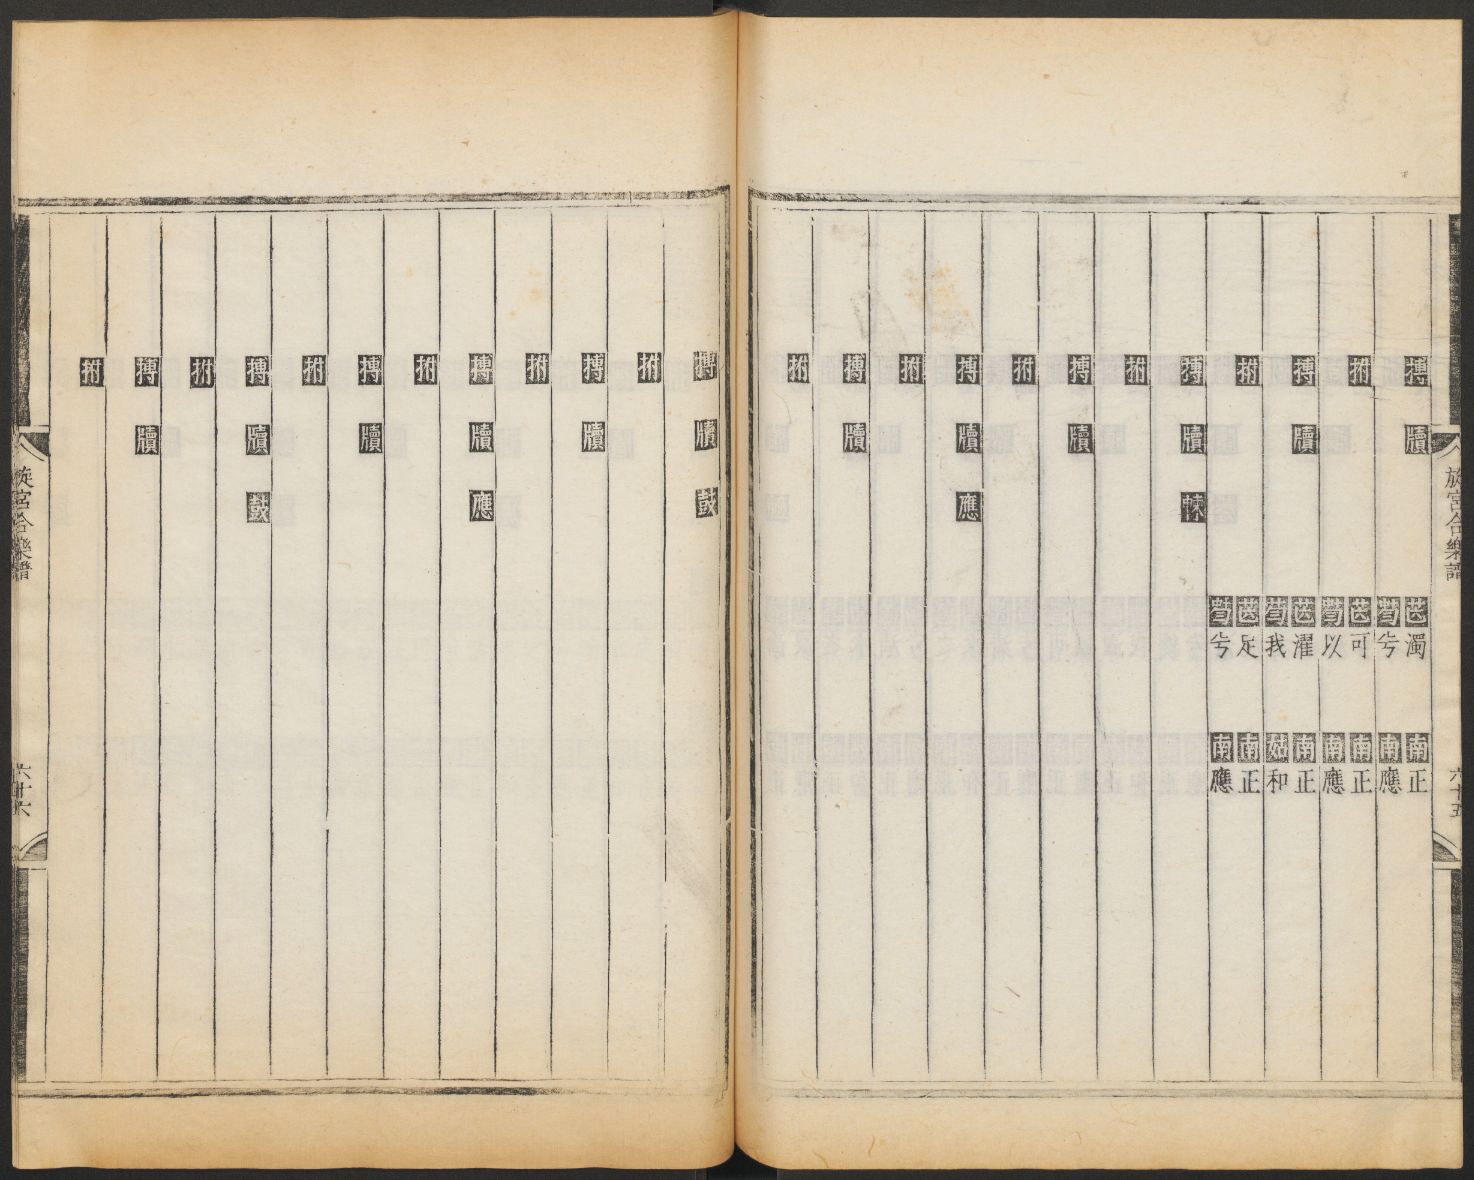 旋宮合樂譜
六十五
搏 牘 濁 南 正
拊 兮 南 應
搏 牘 可 南 正
拊 以 南 應
濯 南 正
搏 牘 𣌾 我 姑 和
足 南 正
兮 南 應
拊
搏 牘
拊
搏 牘 應
拊
搏 牘
拊
搏 牘 鼓
拊
搏 牘
拊
搏 牘 應
拊
搏 牘
拊
搏 牘 鼓
拊
搏 牘
拊
旋宮合樂譜
六十六